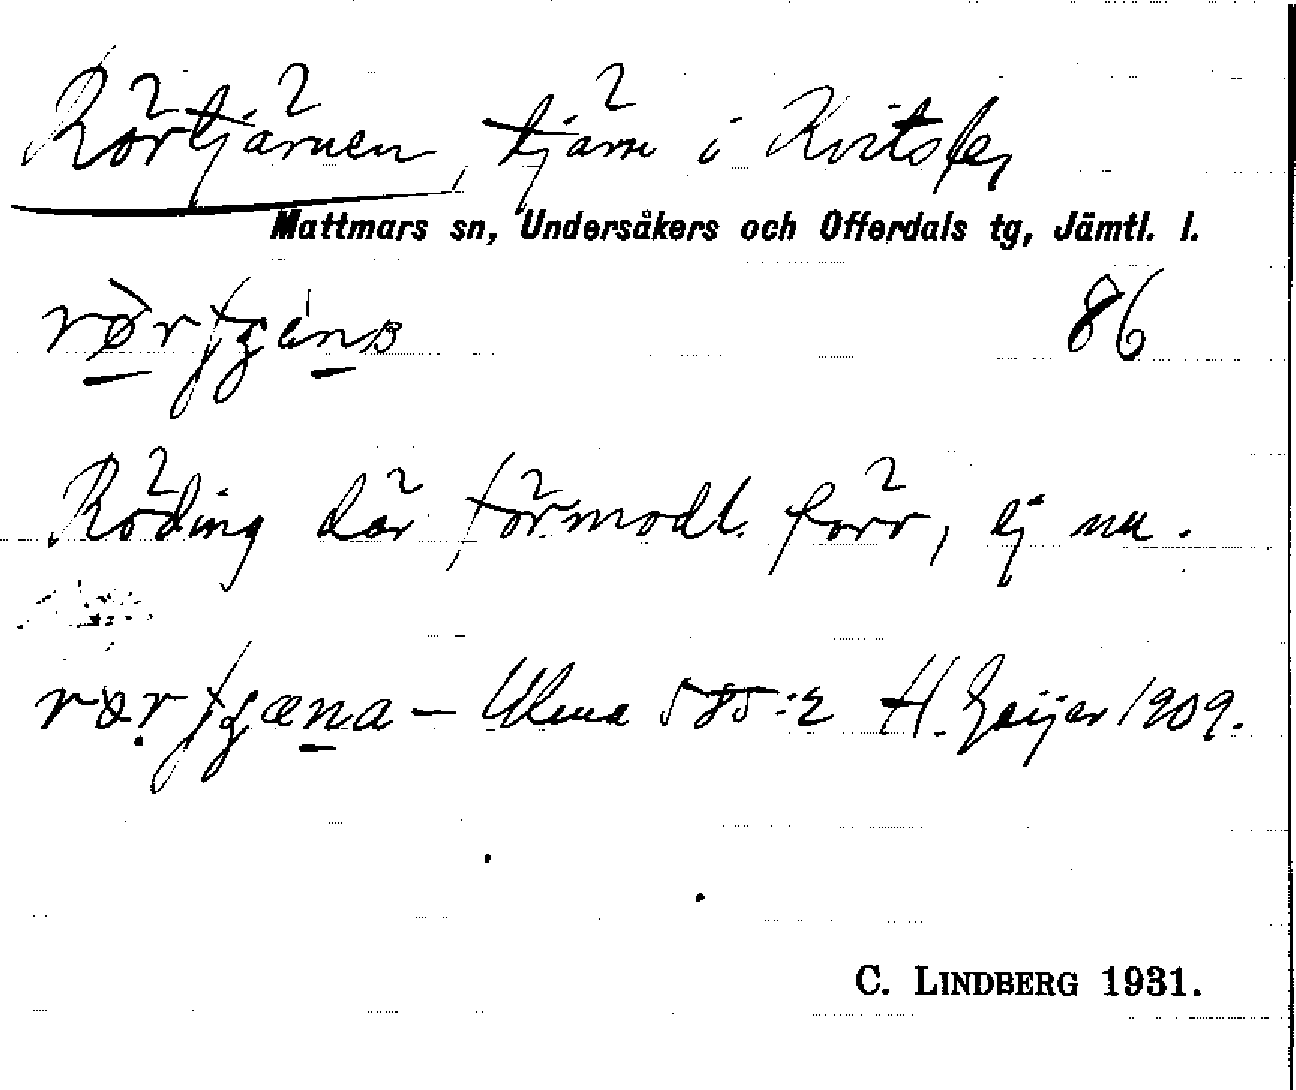 Rörtjärnen, tjärn i Kvitsle,
Mattmars sn, Undersåkers och Offerdals tg, Jämtl. l.
86
Röding där förmodl. förr, ej nu.
Ulma 585:2 H. Geijer 1909.
C. LINDBERG 1931.